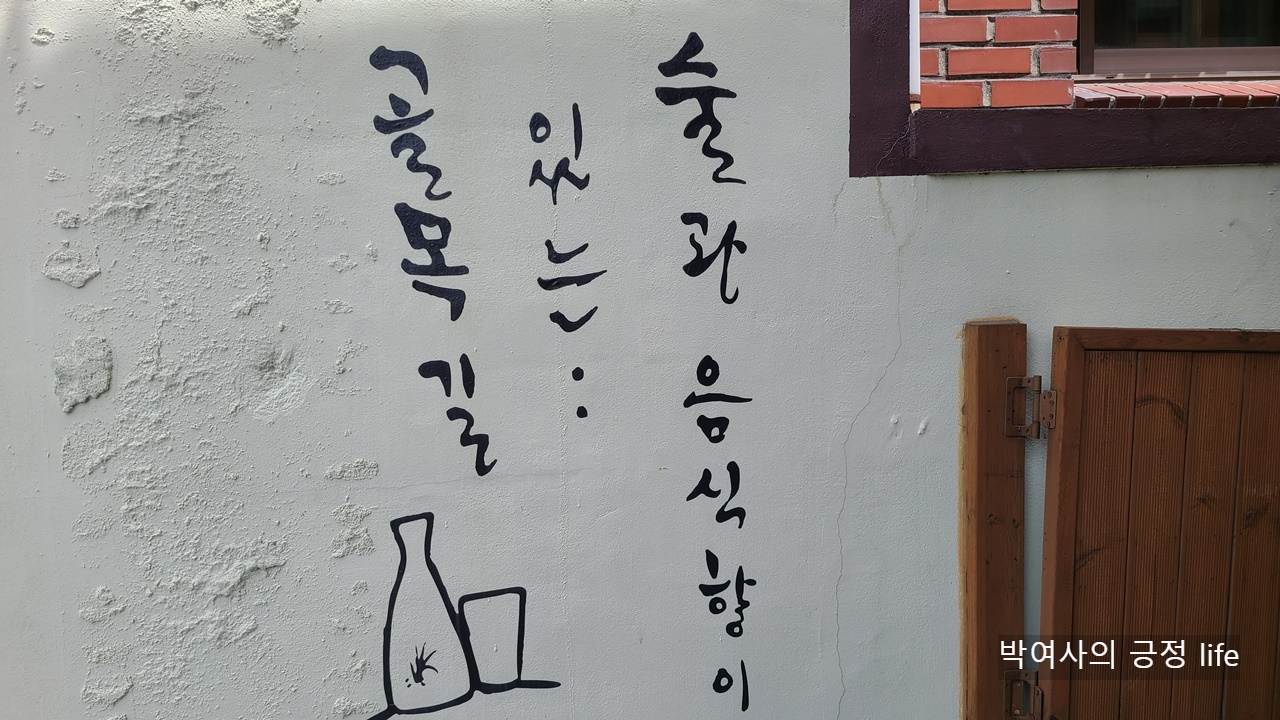 술과 음식향이
있는:
골목길
박여사의 긍정 life